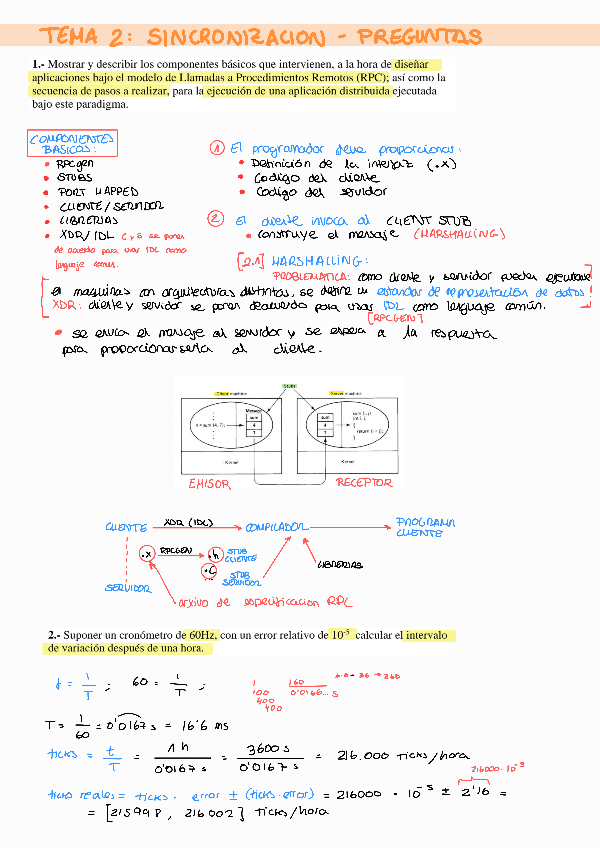 TEMA 2: SINCRONIZACION - PREGUNTAS
1.- Mostrar y describir los componentes básicos que intervienen, a la hora de diseñar
aplicaciones bajo el modelo de Llamadas a Procedimientos Remotos (RPC); así como la
secuencia de pasos a realizar, para la ejecución de una aplicación distribuida ejecutada
bajo este paradigma.
COMPONENTES
BASICOS:
• RPCgen
• STUBS
• PORT MAPPED
• CLIENTE / SERVIDOR
• LIBRERIAS
• XDR/IDL C y S se ponen
de acuerdo para usar IDL como
lenguaje comun.
1 El programador debe proporcionar:
• Definición de la interfaz (.x)
• Codigo del cliente
• Codigo del servidor
2 El cliente invoca al CLIENT STUB
• construye el mensaje (MARSHALLING)
[2.1] MARSHALLING:
PROBLEMATICA: como cliente y servidor pueden ejecutarse
en maquinas con arquitecturas distintas, se define un estandar de representación de datos!
XDR: cliente y servidor se ponen deacuerdo para usar IDL como lenguaje común.
[RPCGEN]
• se envia el mensaje al servidor y se espera a la respuesta
para proporcionarsela al cliente.
Stubs
Client machine
Server machine
Message
n = sum (4, 7);
sum
4
7
sum
4
7
sum (i, j)
int i, j;
{
return (i + j);
}
Kernel
Kernel
EMISOR
RECEPTOR
CLIENTE
XDR (IDL)
COMPILADOR
PROGRAMA
CLIENTE
.x
RPCGEN
.h
STUB
CLIENTE
.c
STUB
SERVIDOR
LIBRERIAS
SERVIDOR
archivo de especificacion RPC
2.- Suponer un cronómetro de 60Hz, con un error relativo de 10⁻⁵ calcular el intervalo
de variación después de una hora.
f = 1/T ; 60 = 1/T ;
1 160
100 0'0166... s
400
400
6·6 = 36 → 360
T = 1/60 = 0'0167 s = 16'6 ms
ticks = t/T = 1 h / 0'0167 s = 3600 s / 0'0167 s = 216.000 ticks/hora
216000 · 10⁻⁵
ticks reales = ticks · error ± (ticks·error) = 216000 · 10⁻⁵ ± 2'16 =
= [215998, 216002] ticks/hora